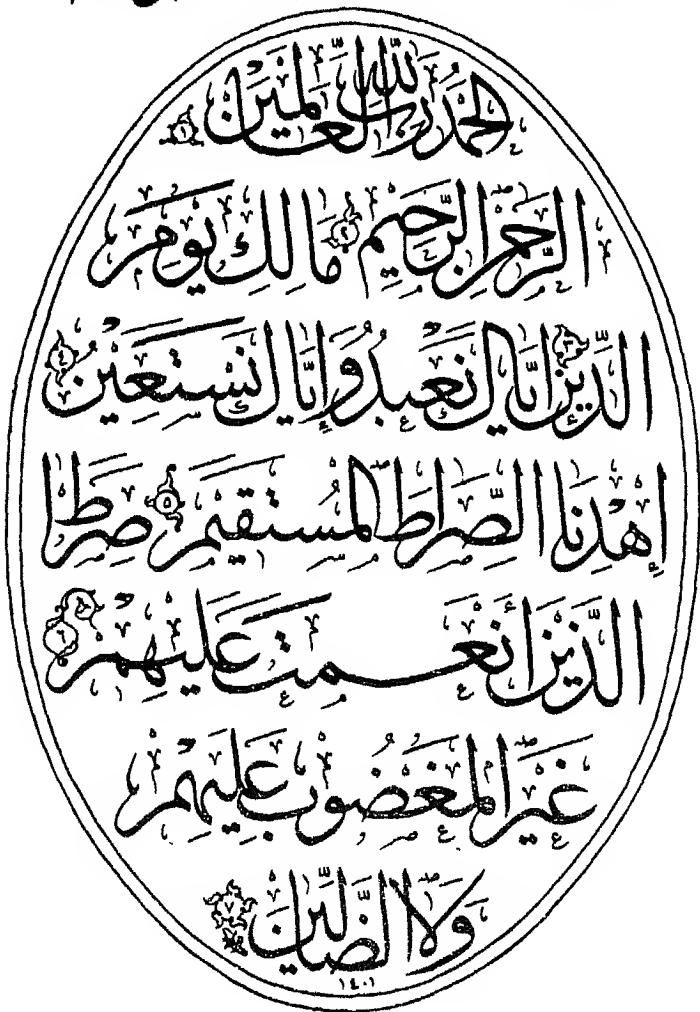 الْحَمْدُ لِلَّهِ رَبِّ الْعَالَمِينَ ١
الرَّحْمَنِ الرَّحِيمِ ٢ مَالِكِ يَوْمِ
الدِّينِ ٣ إِيَّاكَ نَعْبُدُ وَإِيَّاكَ نَسْتَعِينُ ٤
اِهْدِنَا الصِّرَاطَ الْمُسْتَقِيمَ ٥ صِرَاطَ
الَّذِينَ أَنْعَمْتَ عَلَيْهِمْ ٦
غَيْرِ الْمَغْضُوبِ عَلَيْهِمْ
وَلَا الضَّالِّينَ ٧
١٤٠١